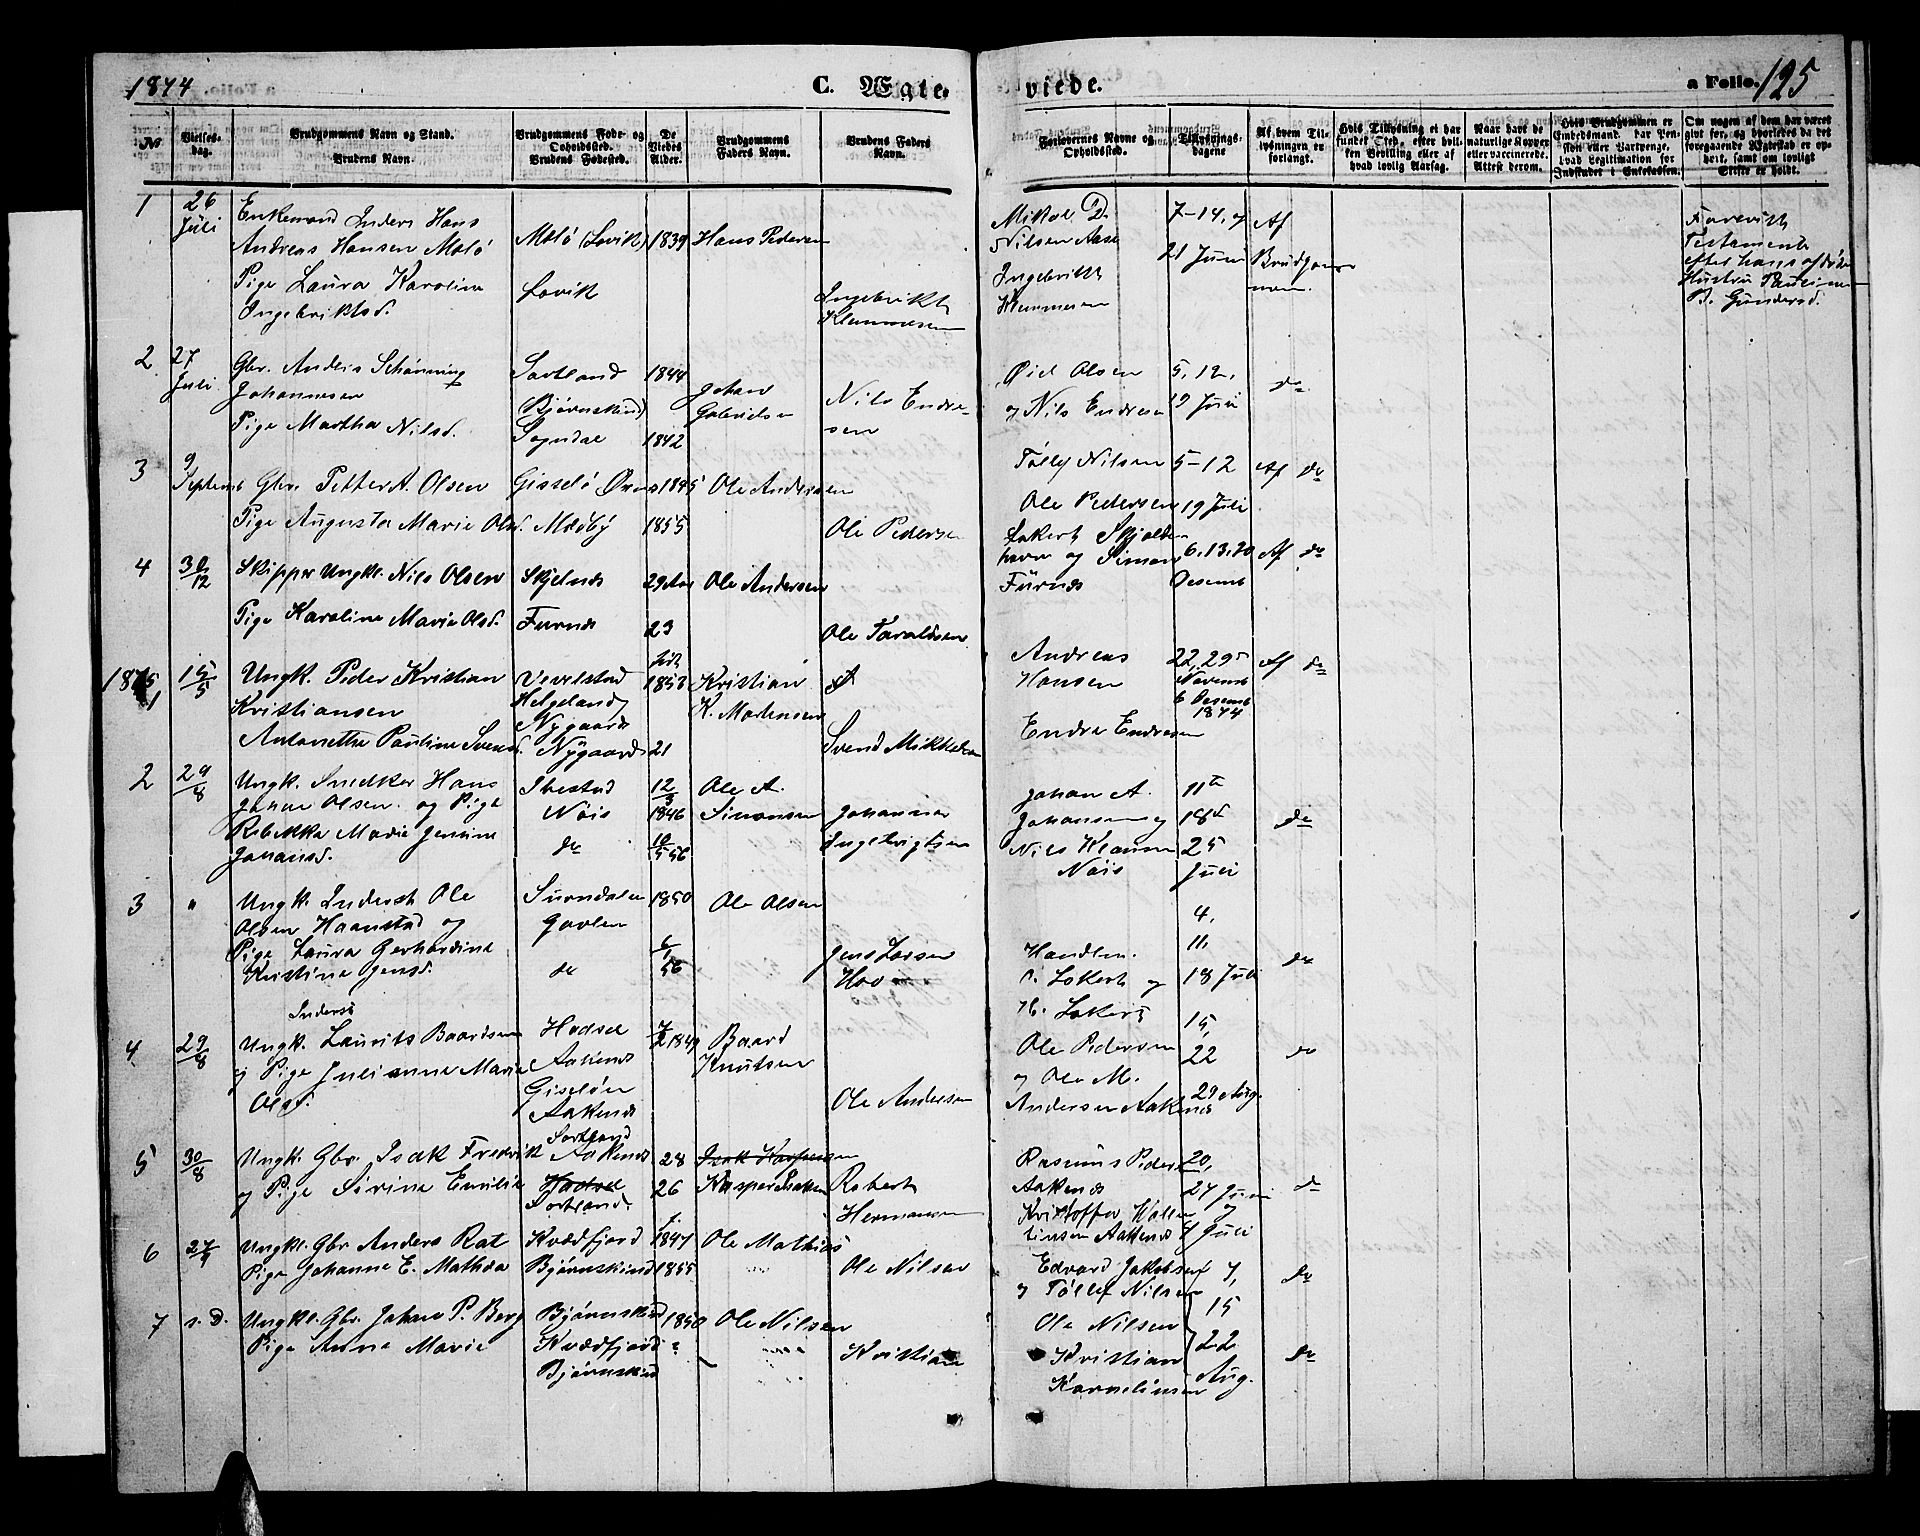 1874
C. Ægte
viede.
a Folio. 125
№
Vielses-
dag.
Brudgommens Navn og Stand.
Brudens Navn.
Brudgommens Føde- og
Opholdssted.
Brudens Fødested.
De
Viedes
Alder.
Brudgommens
Faders Navn.
Brudens Faders
Navn.
Forlovernes Navne og
Opholdssted.
Tillysnings-
dagene
Af hvem Til-
lysningen er
forlangt.
Hvis Tillysning ei har
fundet Sted, efter hvil-
ken Bevilling eller af
hvad lovlig Aarsag.
Naar havt de
naturlige Kopper
eller vaccinerede.
Attest derom.
Hvis Brudgommen er
Embedsmand, har Pen-
sion eller Vartpenge,
hvad Legitimation for
Indskudet i Enkekassen.
Om nogen af dem har været
gift før, og hvorledes da det
foregaaende Ægteskab er op-
hævet, samt om lovligt
Skifte er holdt.
1
26
Juli
Enkemand Inders Hans
Andreas Hansen Molö
Pige Laura Karoline
Ingebriktsd.
Molö (Lovik)
Lovik
1839
Hans Pedersen
Ingebrikt
Klemmesen
Mikal D.
Nilsen Aase
Ingebrikt
Klemmesen
7-14, og
21 Juni
Af
Brudgom-
men
Forevist
Testamente
efter hans afdöde
Hustru
B. Gundersd.
2
27
Juli
Gbr. Anders Schönning
Johannesen
Pige Martha Nilsd.
Sortland
(Bjørnskind)
Sogndal
1844
1842
Johan
Gabrielsen
Nils Endre-
sen
Øid Olsen
og Nils Endresen
5, 12,
19 Juli
do
3
9
Septemb
Gbr. Petter A. Olsen
Pige Augusta Marie Olsd.
Gisselö
Mædby
1845
1855
Ole Andersen
Ole Pedersen
Tølløf Nilsen
Ole Pedersen
5-12
19 Juli
Af do
4
30/12
Skipper Ungkl. Nils Olsen
Pige Karoline Marie Olsd.
Skjelnes
Furnes
29 Aar
23
Ole Andersen
Ole Taraldsen
Lokert Skjolde-
havn og Simon
Furnes
6, 13, 20
Desemb
Af do
1875
1
15/5
Ungk. Peder Kristian
Kristiansen
Antonette Pauline Svends.
Vevelstad
Helgeland
Nygaard
Nygaard
født
1853
21
Kristian
K. Mortensen
Svend Mikkelsen
Andreas
Hansen
Endre Endresen
22, 29
Novemb
6 Desemb
1874
Af do
2
29/8
Ungk. Snedker Hans
Johan Olsen og Pige
Rebekka Marie Jensine
Johansd.
Ibestad
Nøis
do
12/3
1846
10/5 56
Ole A.
Simonsen
Johannes
Ingebrigtsen
Johan A.
Johansen og
Nils Klausen
Nøis
11te
18d
25
Juli
do
3
"
Ungk. Inderst Ole
Olsen Haanstad og
Pige Laura Gerhardine
Kristine Jensd.
Surndalen
Gavlen
do
1850
6/1
56
Ole Olsen
Jens Larsen
Hov
Handlen.
Lokert og
H. Lokert
4,
11,
18 Juli
do
4
29/8
Inders
Ungk. Laurits Baardsen
og Pige Julianne Marie
Olsd.
Hadsel
Aakenes
Giselöen
Aakenes
1849
Baard
Knutsen
Ole Andersen
Ole Pedersen
og Ole M.
Andersen Aakenes
15,
22
29 Aug.
do
5
30/8
Ungk. Gbr. Isak Fredrik
og Pige Sirine Emilie
Sortland
Aakenes
Hadsel
Sortland.
28
26
Isak Kaspersen
Kasper Isaksen
Robert
Hermansen
Rasmus Peders
Aakenes
Kristoffer
Aakenes
20,
27 Juni
og
4 Juli
do
6
27/9
Ungkl. Gbr Anders Rat
Pige Johanne E. Mathea
Kvædfjord
Bjørnskind
f.
1847
1855
Ole Mathias
Ole Nilsen
Edvard Jakobsen
og Tøllef Nilsen
7
s. d.
Ungkl. Gbr. Johan P. Berg
Pige Anne Marie
Bjørnskind
Kvædfjord
Bjørnskind
1850
Ole Nilsen
Kristian
Ole Nilsen
Kristian
Kornelius sen
15
22
Aug.
do